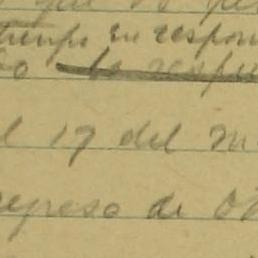 tiempo en respon
lo la respu
l 17 del m
regreso de O